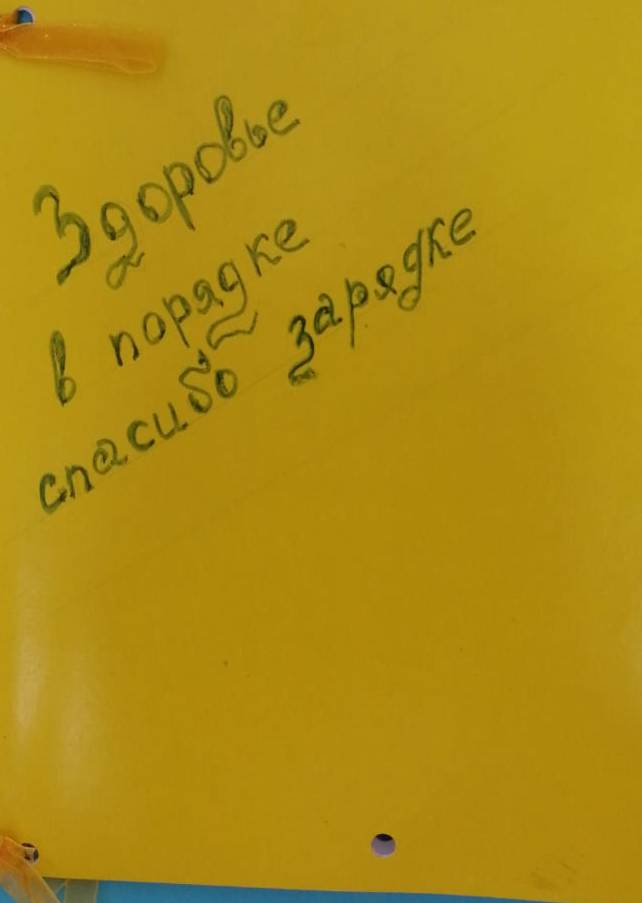 Здоровье
в порядке
спасибо зарядке